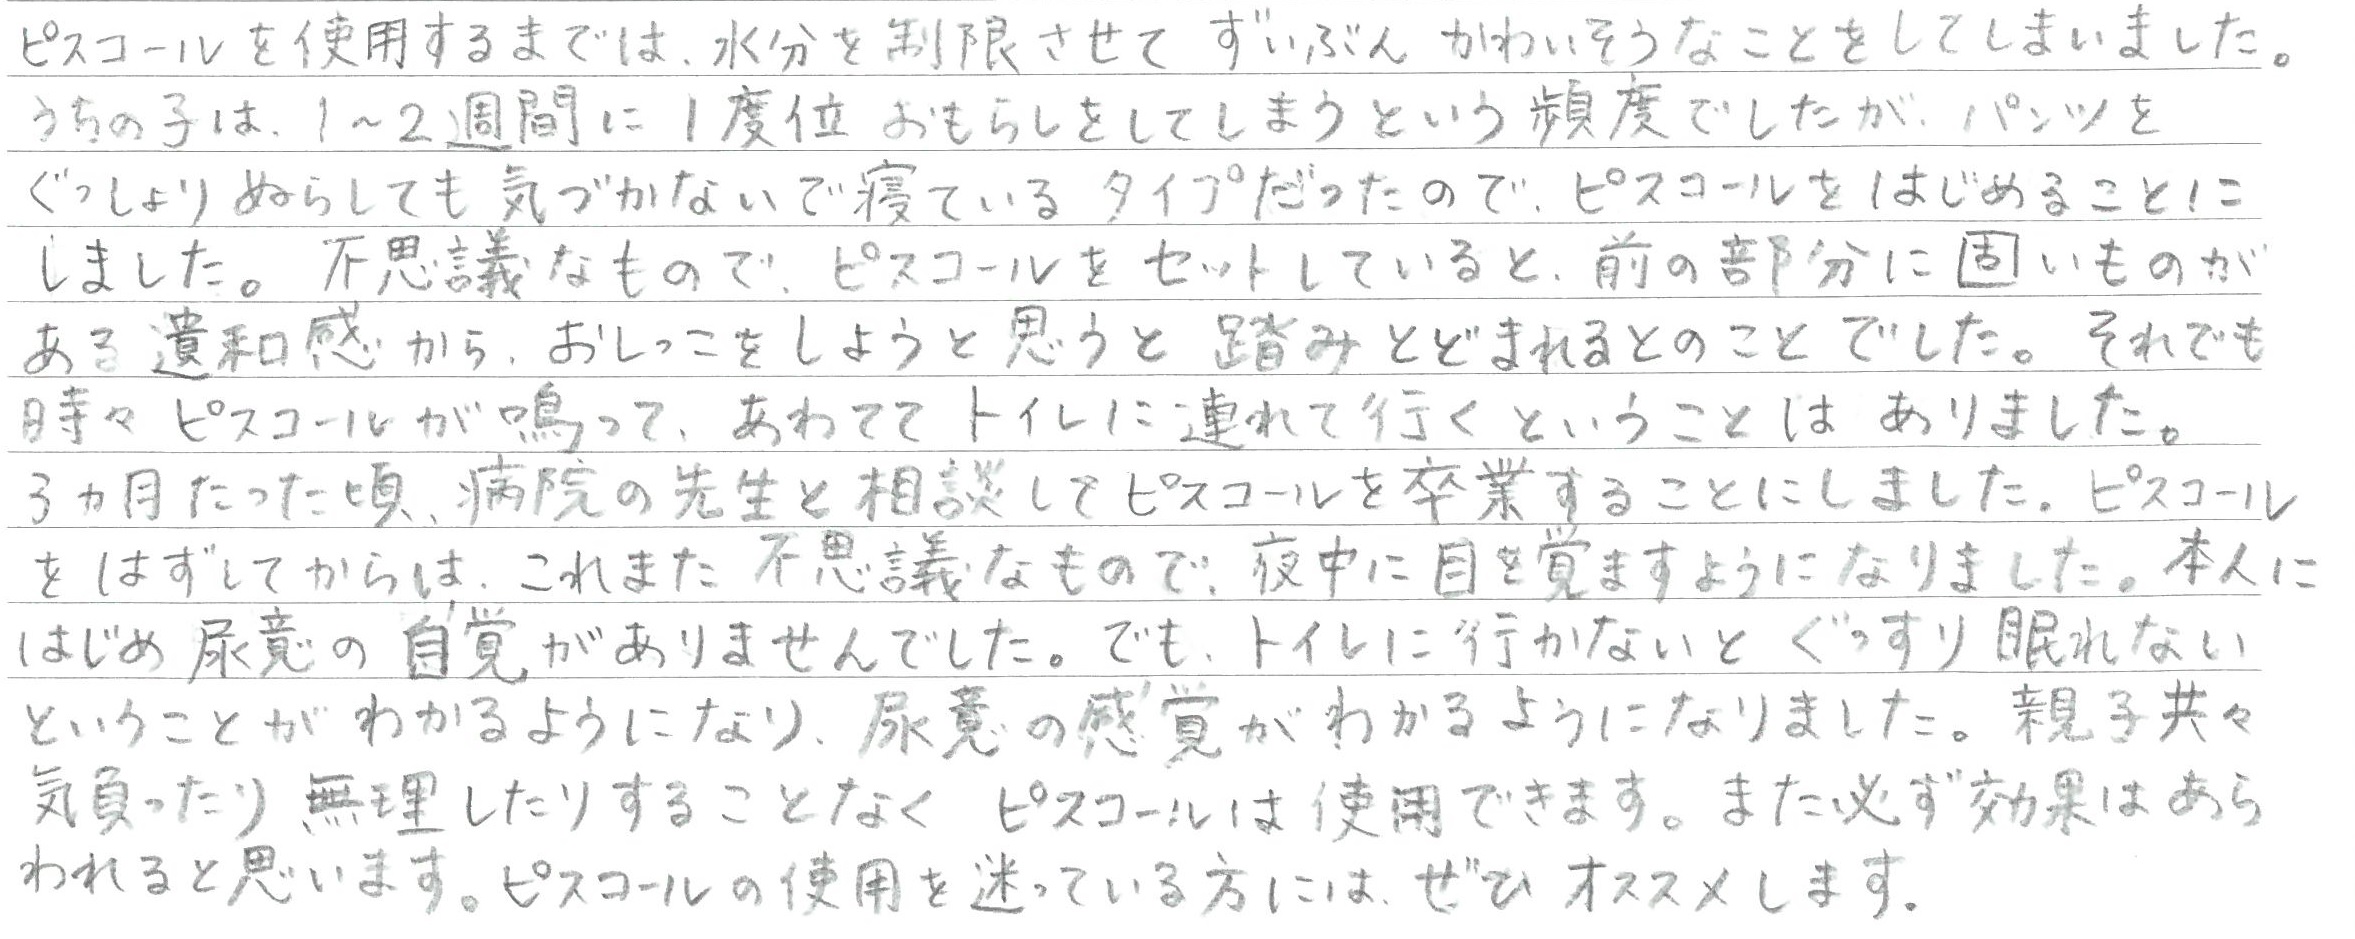 ピスコールを使用するまでは、水分を制限させて ずいぶん かわいそうなことをしてしまいました。
うちの子は、1~2週間に1度位 おもらしをしてしまうという頻度でしたが、パンツを
ぐっしょり ぬらしても 気づかないで寝ている タイプだったので、ピスコールをはじめることに
しました。 不思議なもので、ピスコールを セットしていると、前の部分に固いものが
ある 遺和感から、おしっこをしようと思うと 踏みとどまれるとのことでした。それでも
時々 ピスコールが鳴って、あわてて トイレに連れて行くということは ありました。
3ヵ月たった頃、病院の先生と相談してピスコールを卒業することにしました。ピスコール
をはずしてからは、これまた 不思議なもので、夜中に目を覚ますようになりました。本人に
はじめ 尿意の自覚がありませんでした。でも、トイレに行かないと ぐっすり 眠れない
ということが わかるようになり、尿意の感覚がわかるようになりました。親子共々
気負ったり 無理したりすることなく ピスコールは使用できます。また必ず効果はあら
われると思います。ピスコールの使用を迷っている方には、ぜひ オススメします。